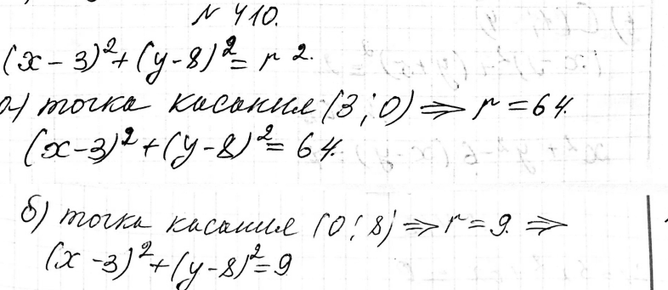 № 410.
(x-3)²+(y-8)²= r².
а) точка касания (3;0) ⇒ r = 64.
(x-3)²+(y-8)²= 64.
б) точка касания (0;8) ⇒ r = 9. ⇒
(x-3)²+(y-8)²=9